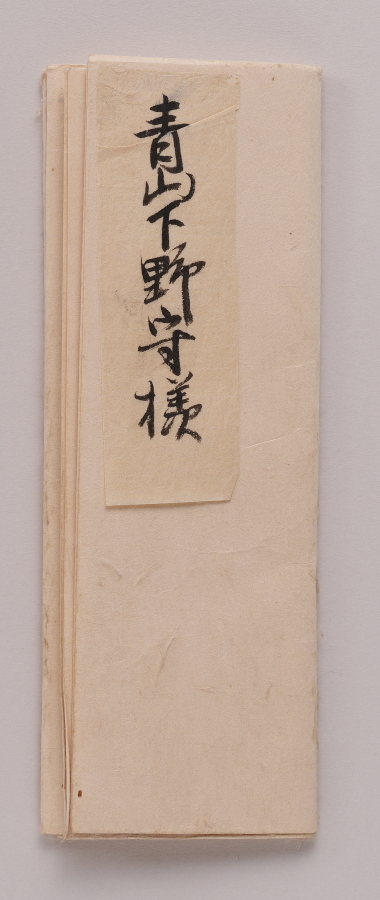 青山下野守様